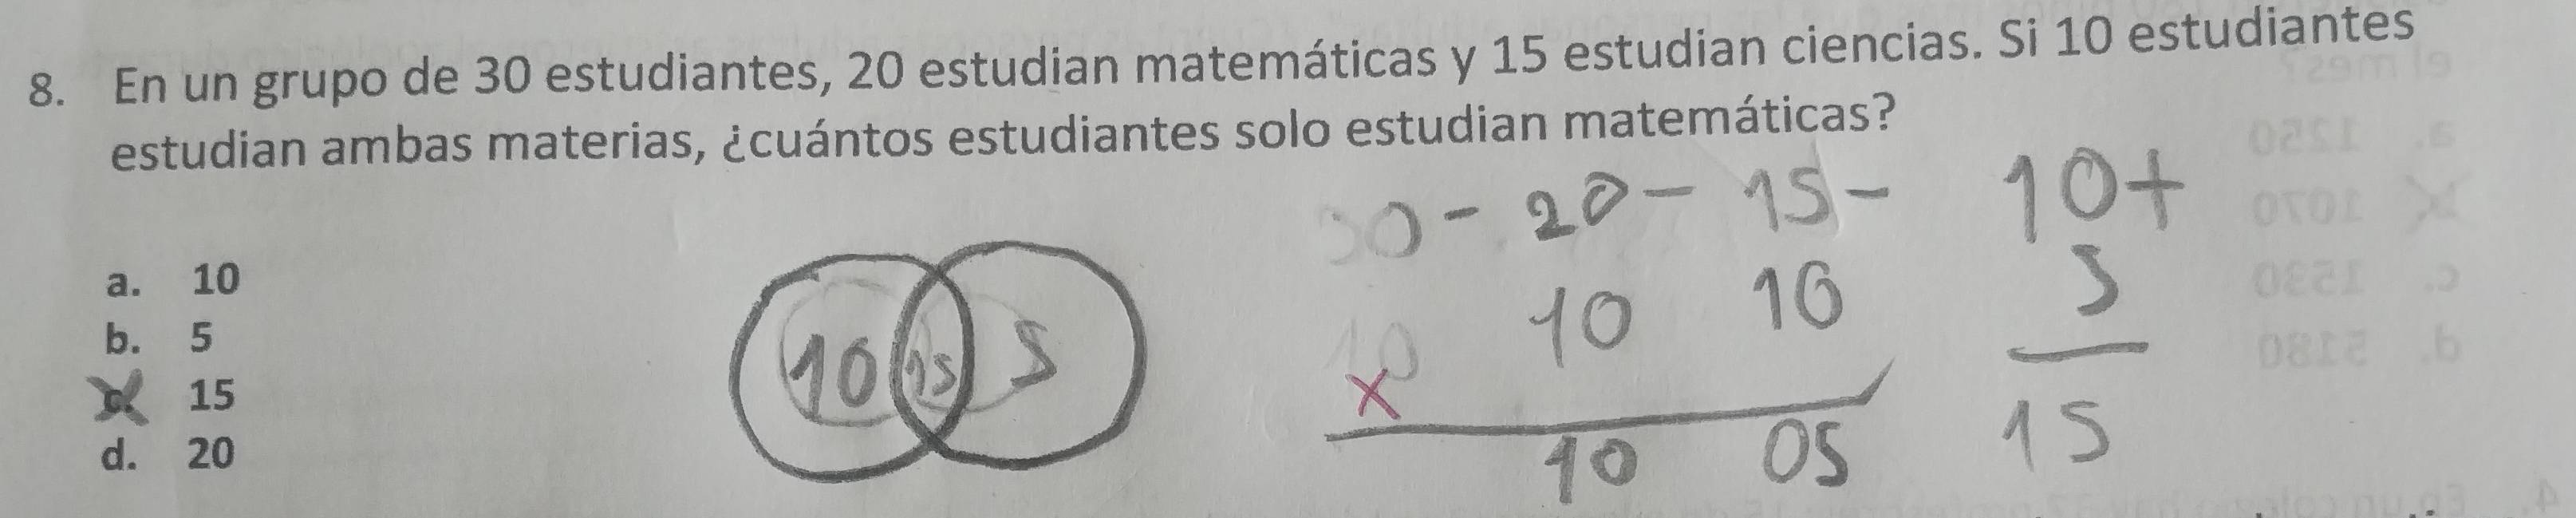 8. En un grupo de 30 estudiantes, 20 estudian matemáticas y 15 estudian ciencias. Si 10 estudiantes
estudian ambas materias, ¿cuántos estudiantes solo estudian matemáticas?
30 - 20 - 15 - 10+
a. 10
10 10 10 5
b. 5
10 15 5
X
c. 15
10 05 15
d. 20